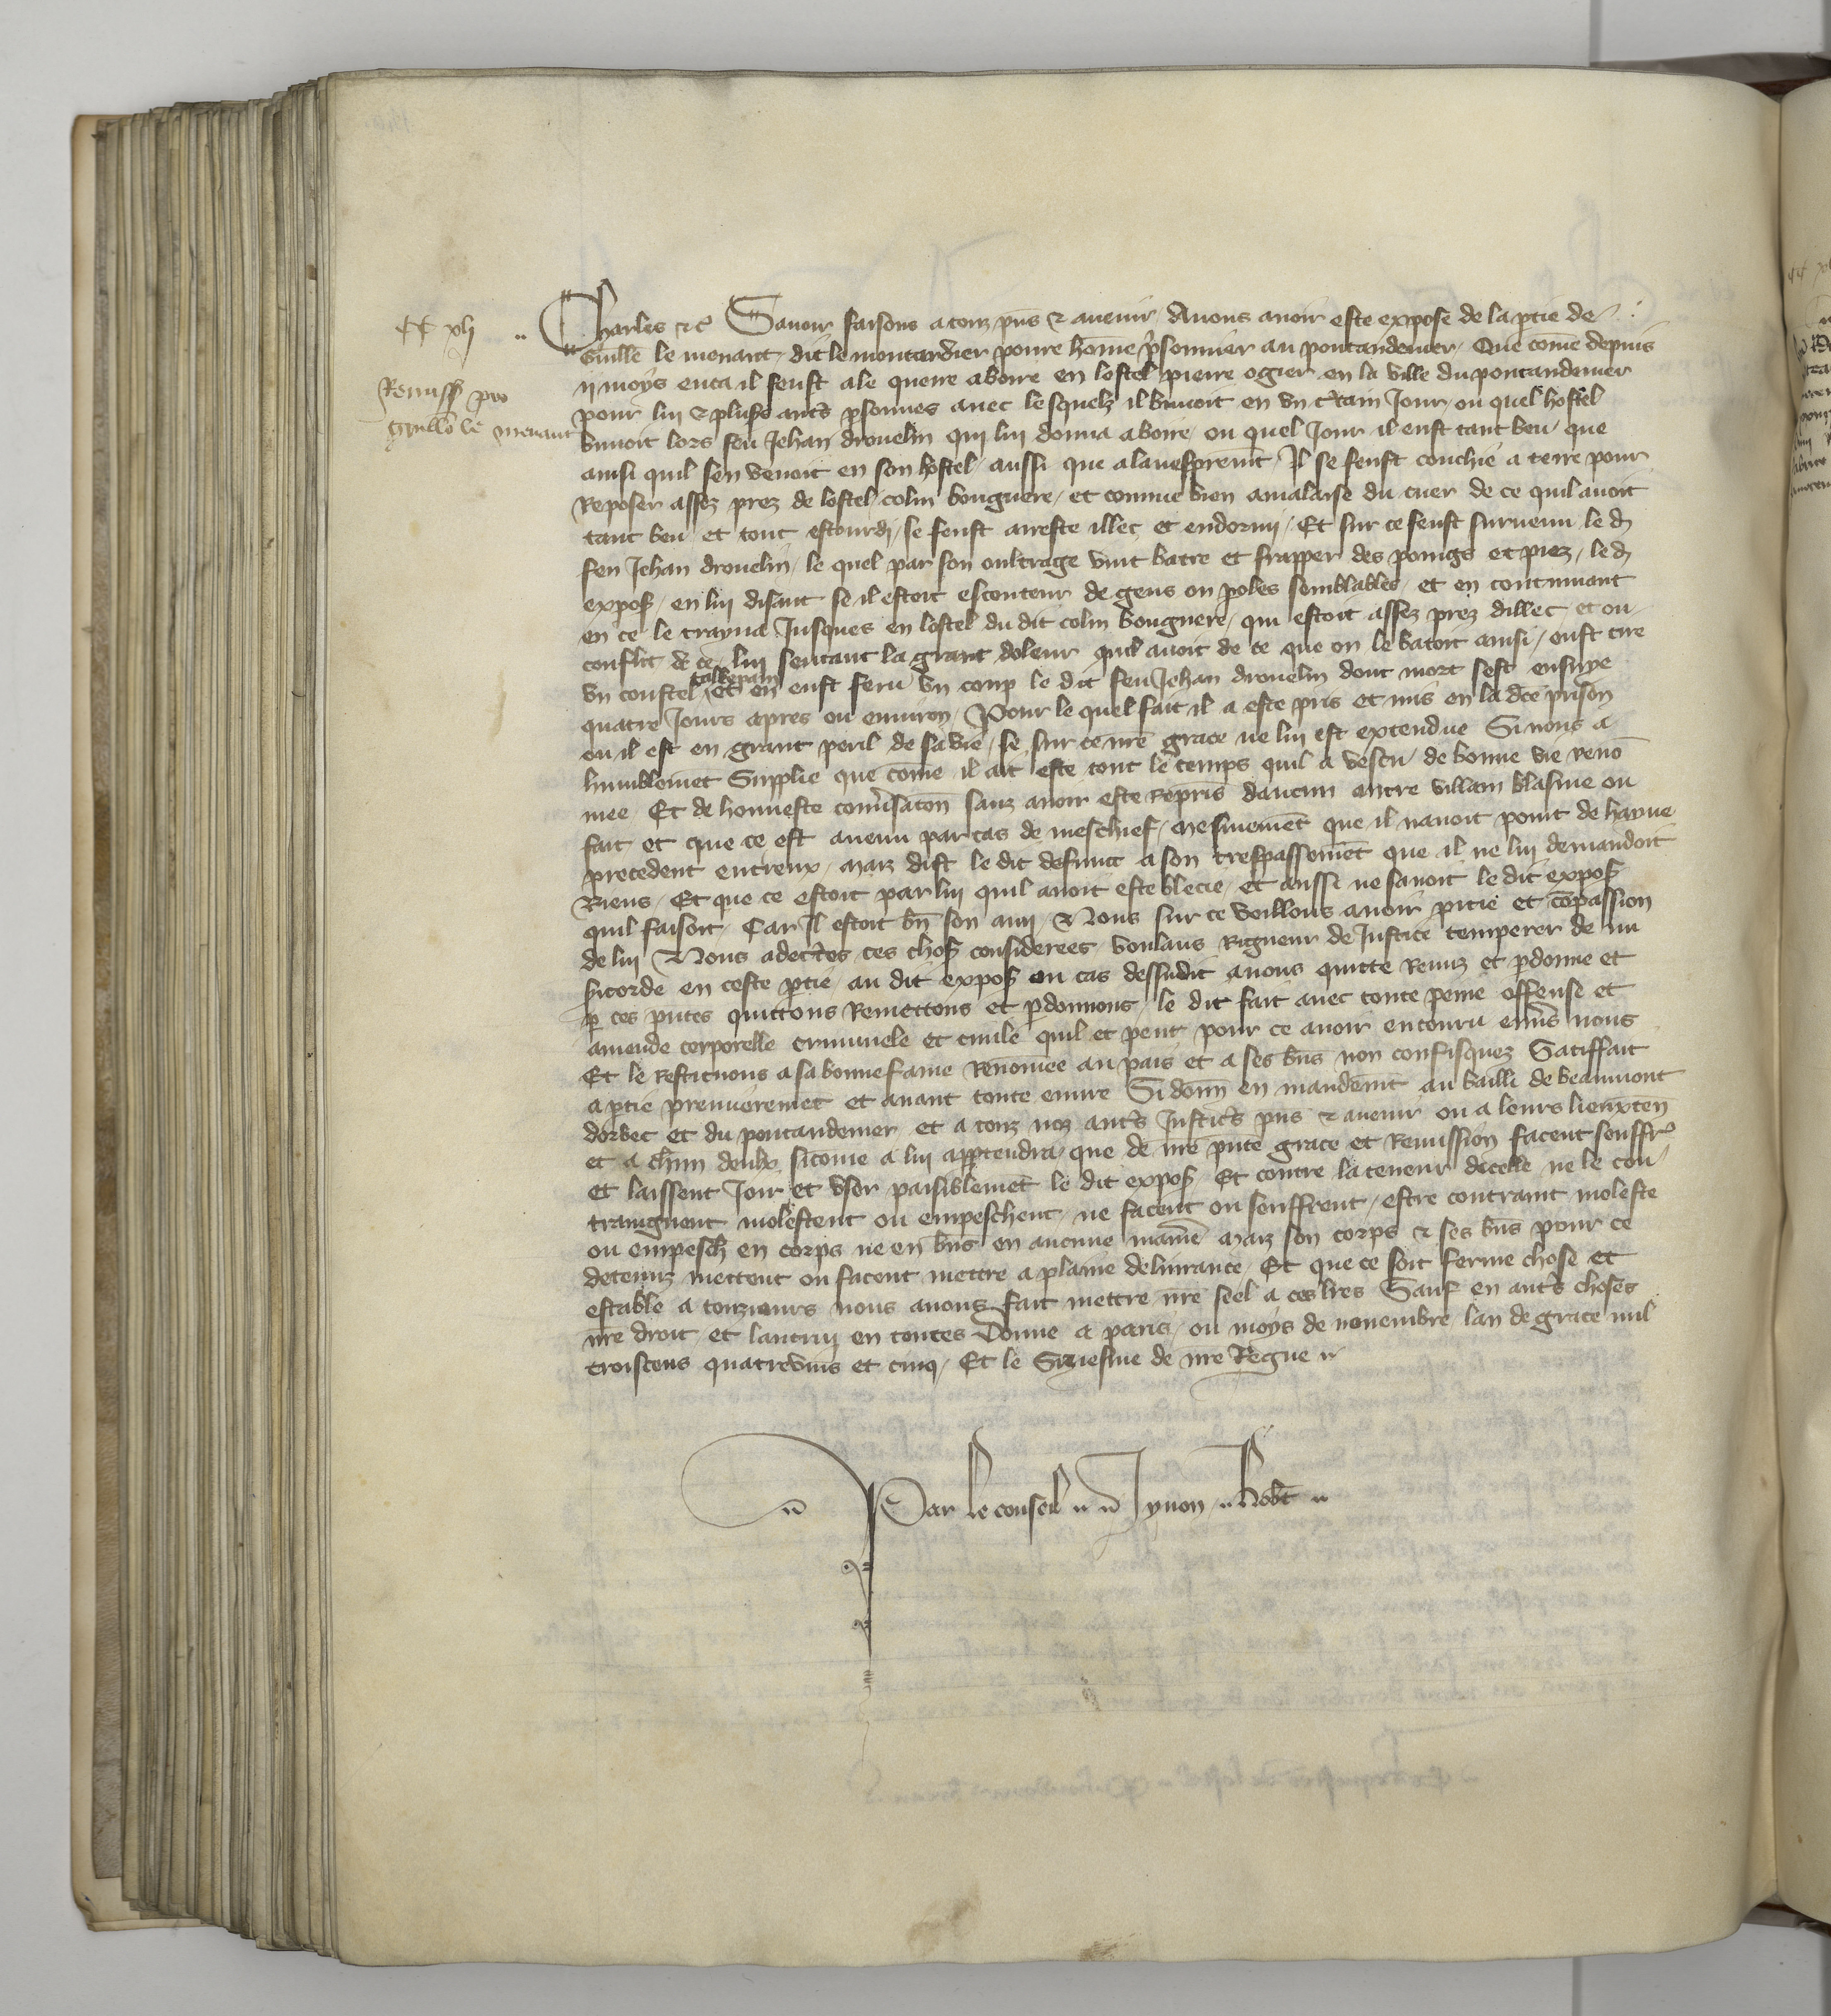 xli
Remiss pro
Guillo le menant
Charles etc Savoir faisons a touz pns et avenir Avons avoir este expose de la ptie de
Guille le menant dit le moutardier povre home prisonnier au pontaudemer Que come depuis
ij moys enca il feust ale querre a boire en lostel pierre ogier en la ville du pontaudemer
pour lui et pluss autrs psonnes avec lesquelz il buvoit en un ctain Jour ou quel hostel
buvoit lors feu Jehan drouelin qui lui donna a boire ou quel Jour il eust tant beu que
ainsi quil sen venoit en son hostel aussi que a lavesprement Il se feust couchie a terre pour
Reposer assez prez de lostel colin bouguere et comme bien amalaise du cuer de ce quil avoit
tant beu et tout estourdi se feust arreste illec et endormi Et sur ce feust survenu le d
feu Jehan drouelin le quel par son oultrage vint batre et frapper des poings et piez le d
expos en lui disant se il estoit escouteur de gens ou poles semblables et en continuant
en ce le trayna Jusques en lostel du dit colin bouguere qui estoit assez prez dillec et ou
conflit de ce lui sentant la grant doleur quil avoit de ce que on le batoit ainsi eust tire
un coustel taillepain et en eust feru un coup le dit feu Jehan drouelin dont mort sest ensuye
quatre Jours apres ou environ Pour le quel fait il a este pris et mis en la dce prison
ou il est en grant peril de sa vie se sur ce nre grace ne lui est extendue Si nous a
humblemet Supplie que come il ait este tout le temps quil a vescu de bonne vie reno
mee Et de honneste conversaton sanz avoir este Repris daucun autre villain blasme ou
fait et que ce est avenu par cas de meschief mesmemet que il navoit point de hayne
precedent entreux maiz dist le dit defunct a son trespassemet que il ne lui demandoit
Riens Et que ce estoit par lui quil avoit este blecie et aussi ne savoit le dit expos
quil faisoit Car Il estoit bn son ami et Nous sur ce voillons avoir pitie et compassion
de lui Nous adectes ces chos considerees voulans Rigueur de Justice temperer de mi
sicorde en ceste ptie au dit expos ou cas dessudit avons quitte Remiz et pdonne et
p ces pntes quittons Remettons et pdonnons le dit fait avec toute peine offense et
amende corporelle criminele et civile quil et peut pour ce avoir encouru envs nous
Et le Restituons a sa bonne fame Renomee au pais et a ses bns non confisquez Satiffait
a ptie premieremet et avant toute euvre Si donn en mandemt au bailli de beaumont
dorbec et du pontaudemer et a touz noz autrs Justicrs pns et avenir ou a leurs lieuxten
et a chun deulx sicome a lui apptendra que de nre pnte grace et Remission facent souffr
et laissent Jour et user paisiblemet le dit expos Et contre la teneur dicelle ne le con
traingnent molestent ou empeschent ne facent ou seuffrent estre contraint moleste
ou empesch en corps ne en bns en aucune manie maiz son corps et ses bns pour ce
detenuz mettent ou facent mettre a plaine delivrance Et que ce soit ferme chose et
estable a touzjours nous avons fait mettre nre seel a ces lres Sauf en autrs choses
nre droit et lautruy en toutes Donne a paris ou moys de novembre lan de grace mil
troiscens quatrevins et cinq Et le Siziesme de nre Regne
Par le conseil Jynon Hobt